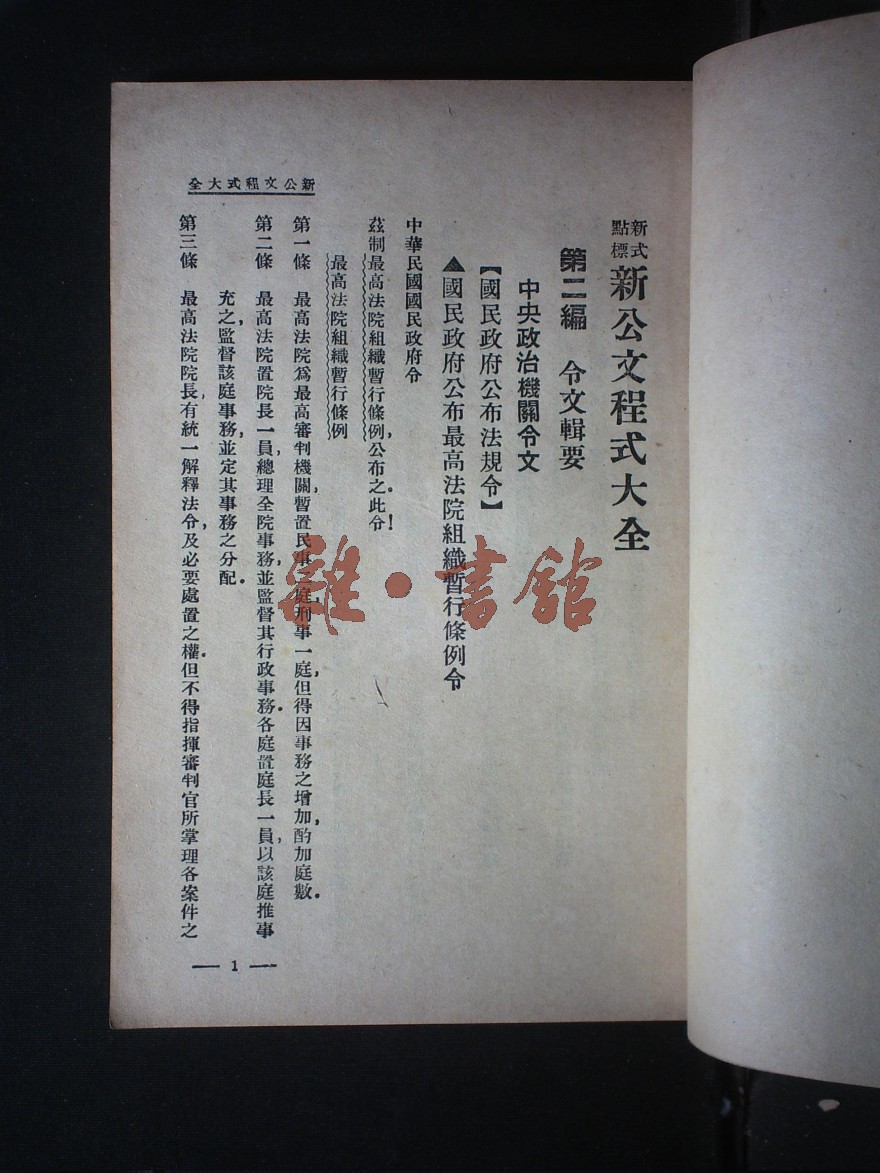 新式
標點
新公文程式大全
第二編　令文輯要
中央政治機關令文
【國民政府公布法規令】
▲國民政府公布最高法院組織暫行條例令
中華民國國民政府令
茲制最高法院組織暫行條例，公布之。此令！
最高法院組織暫行條例
第一條　最高法院爲最高審判機關，暫置民事庭，刑事一庭，但得因事務之增加，酌加庭數。
第二條　最高法院置院長一員，總理全院事務，並監督其行政事務。各庭置庭長一員，以該庭推事
充之，監督該庭事務，並定其事務之分配。
第三條　最高法院院長，有統一解釋法令，及必要處置之權。但不得指揮審判官所掌理各案件之
新公文程式大全
— 1 —
雜·書館